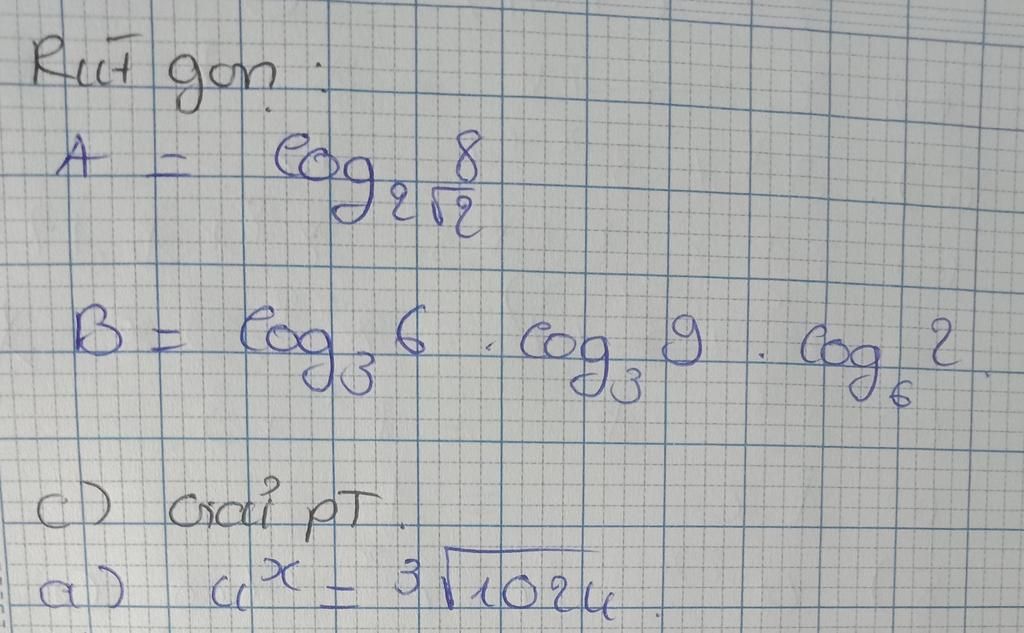 Rút gọn :
A = log_{2√2} 8
B = log_3 6 . log_3 9 . log_6 2.
c) Giải pT.
a) 4^x = ∛1024.